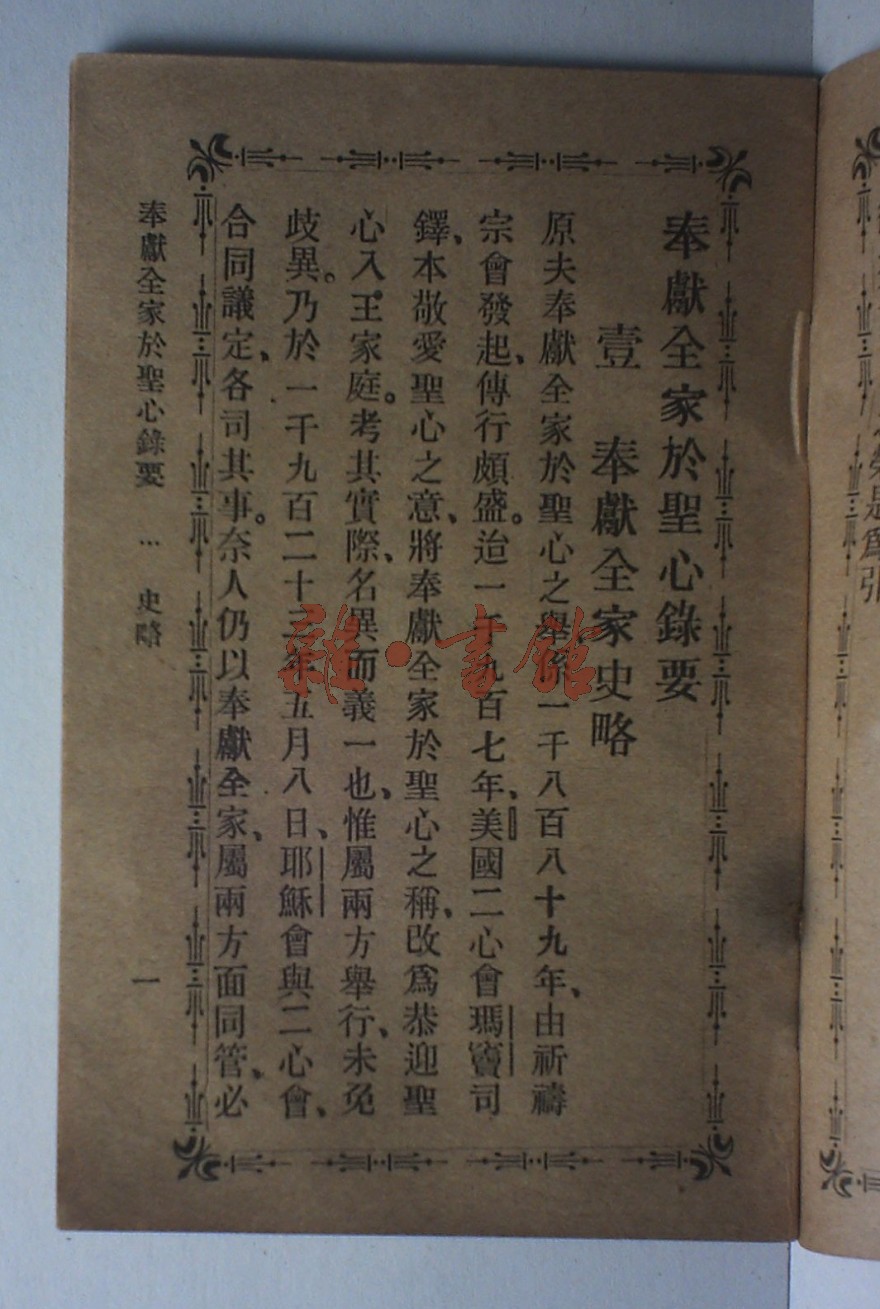 奉獻全家於聖心錄要
壹　奉獻全家史略
原夫奉獻全家於聖心之舉係一千八百八十九年、由祈禱
宗會發起、傳行頗盛。迨一千九百七年、美國二心會瑪竇司
鐸、本敬愛聖心之意、將奉獻全家於聖心之稱、改爲恭迎聖
心入王家庭。考其實際、名異而義一也、惟屬兩方舉行、未免
歧異。乃於一千九百二十三年五月八日、耶穌會與二心會、
合同議定、各司其事。奈人仍以奉獻全家、屬兩方面同管、必
奉獻全家於聖心錄要　…　史略　一
雜·書館
是爲引